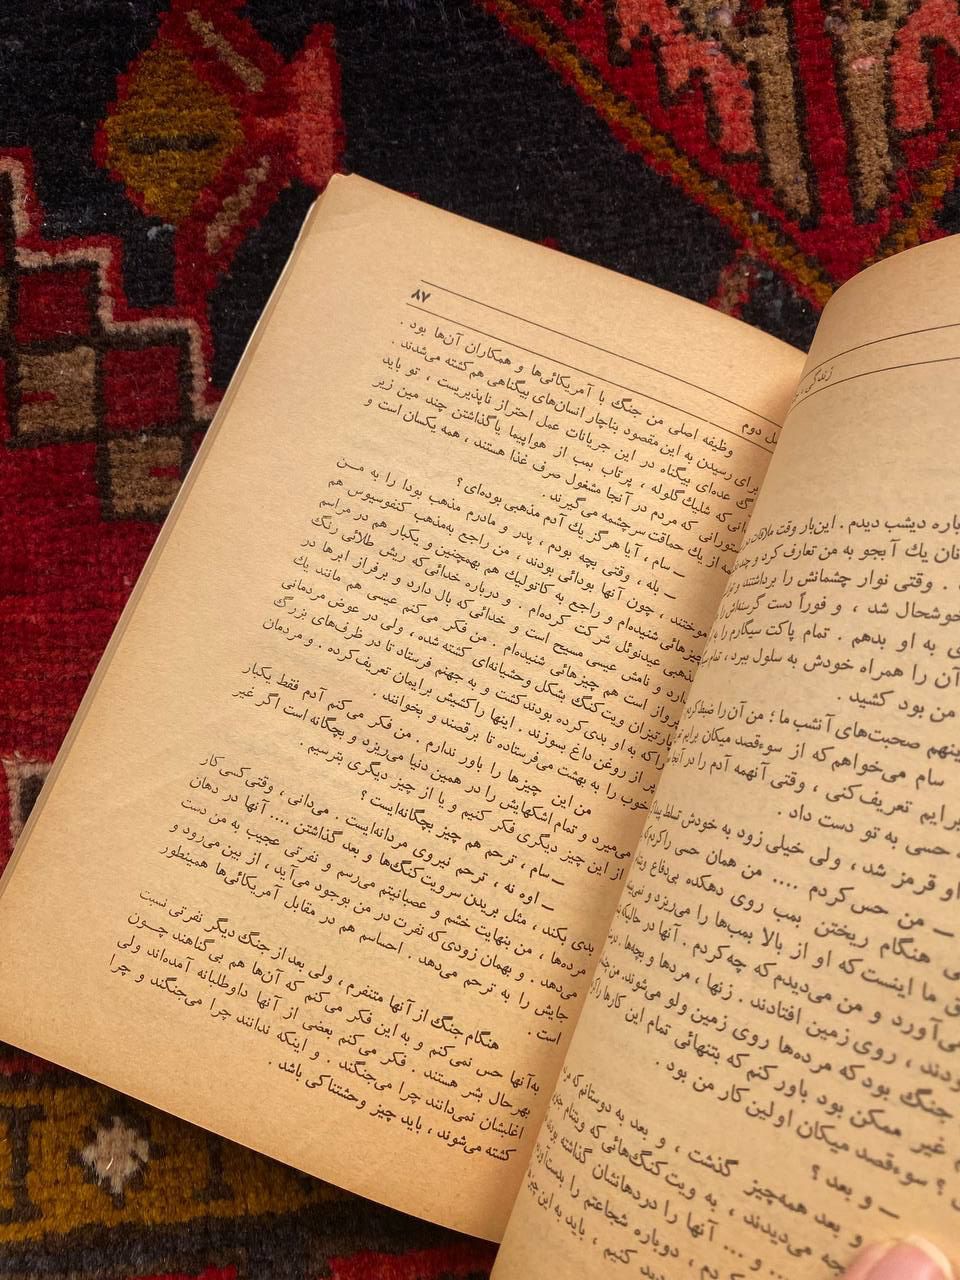 زندگی ،
باره دیشب دیدم . این‌بار وقت ملاقات
نان یك آبجو به من تعارف کرد و چند
. وقتی نوار چشمانش را برداشتند و
خوشحال شد ، و فوراً دست گرسنه‌اش را
ی به او بدهم . تمام پاکت سیگارم را
آن را همراه خودش به سلول ببرد ، تمام
من بود کشید .
صحبت‌های آنشب ما ؛ من آن را ضبط کرده
سام می‌خواهم که از سوءقصد میکان برایم
برایم تعریف کنی ، وقتی آنهمه آدم را در آنجا
حسی به تو دست داد .
او قرمز شد ، ولی خیلی زود به خودش تسلط
ـ من حس کردم .... من همان حس را کردم که
هنگام ریختن بمب روی دهکده بی‌دفاع
ما اینست که او از بالا بمب‌ها را می‌ریزد و
می‌آورد و من می‌دیدم که چه کردم . آنها در حالیکه
، روی زمین افتادند . زنها ، مردها و بچه‌ها .
جنگ بود که مرده‌ها روی زمین ولو می‌شوند. من
غیر ممکن بود باور کنم که بتنهائی تمام این کارها را
؟ سوءقصد میکان اولین کار من بود .
ـ و بعد ؟
و بعد همه‌چیز گذشت ، و بعد به دوستانم که
می‌دیدند ، به ویت‌کنگ‌هائی که ویتنام
... و ... آنها را در دهانشان گذاشته بودند
، دوباره شجاعتم را بدست آوردم
کنیم ، باید به این
دوم ۸۷
وظیفه اصلی من جنگ با آمریکائی‌ها و همکاران آن‌ها بود .
برای رسیدن به این مقصود بناچار انسان‌های بیگناهی هم کشته می‌شدند .
عده‌ای بیگناه در این جریانات عمل احتراز ناپذیریست ، تو باید
که شلیك گلوله ، پرتاب بمب از هواپیما یا گذاشتن چند مین زیر
که مردم در آنجا مشغول صرف غذا هستند ، همه یکسان است و
از یك حماقت سرچشمه می‌گیرند .
ـ سام ، آیا هرگز یك آدم مذهبی بوده‌ای ؟
ـ بله ، وقتی بچه بودم ، پدر و مادرم مذهب بودا را به من
، چون آنها بودائی بودند ، من راجع به‌مذهب کنفوسیوس هم
چیزهائی شنیده‌ام و راجع به کاتولیك هم بهمچنین و یکبار هم در مراسم
مذهبی عیدنوئل شرکت کرده‌ام . و درباره خدائی‌که ریش طلائی رنگ
دارد و نامش عیسی مسیح است و خدائی که بال دارد و برفراز ابرها در
پرواز است هم چیزهائی شنیده‌ام . من فکر می کنم عیسی هم مانند یك
پارتیزان ویت‌کنگ بشکل وحشیانه‌ای کشته شده ، ولی در عوض مردمانی
را که به او بدی کرده بودند کشت و به جهنم فرستاد تا در ظرف‌های بزرگ
پر از روغن داغ بسوزند . اینها را کشیش برایمان تعریف کرده . و مردمان
خوب را به بهشت می‌فرستاده تا برقصند و بخوانند .
من این چیزها را باور ندارم . من فکر می کنم آدم فقط یکبار
می‌میرد و تمام اشکهایش را در همین دنیا می‌ریزد و بچگانه است اگر غیر
از این چیز دیگری فکر کنیم و یا از چیز دیگری بترسیم .
ـ سام ، ترحم هم چیز بچگانه‌ایست ؟
ـ اوه نه ، ترحم نیروی مردانه‌ایست . می‌دانی ، وقتی کسی کار
بدی بکند ، مثل بریدن سر ویت‌کنگ‌ها و بعد گذاشتن .... آنها در دهان
مرده‌ها ، من بنهایت خشم و عصبانیتم می‌رسم و نفرتی عجیب به من دست
می‌دهد . و بهمان زودی که نفرت در من بوجود می‌آید ، از بین می‌رود و
جایش را به ترحم می‌دهد . احساسم هم در مقابل آمریکائی‌ها همینطور
است .
هنگام جنگ از آنها متنفرم ، ولی بعد از جنگ دیگر نفرتی نسبت
به‌آنها حس نمی‌کنم و به این فکر می‌کنم که آن‌ها هم بی گناهند چون
بهرحال بشر هستند . فکر می‌کنم بعضی از آنها داوطلبانه آمده‌اند ولی
اغلبشان نمی‌دانند چرا می‌جنگند . و اینکه ندانند چرا می‌جنگند و چرا
کشته می‌شوند ، باید چیز وحشتناکی باشد .